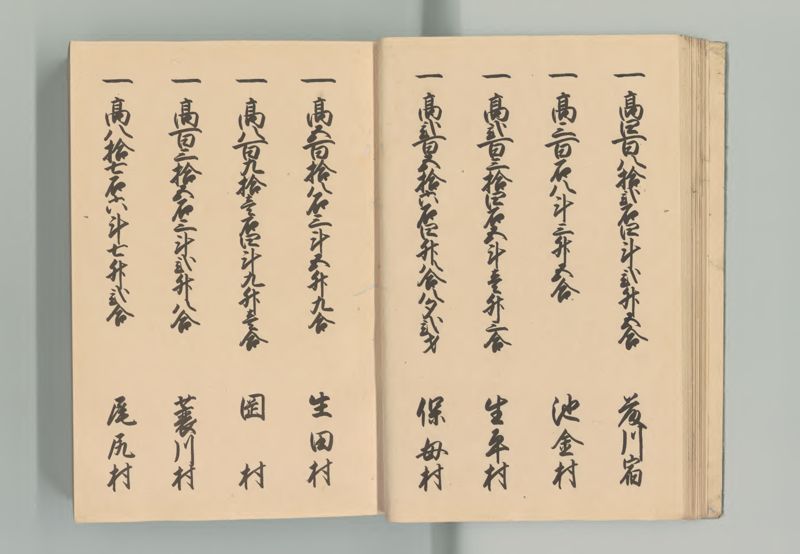 一高四百八拾弐石四斗弐升五合 藤川宿
一高三百石八斗三升五合 池金村
一高弐百三拾四石五斗壱升三合 生平村
一高弐百五拾六石四升八合八夕弐才 保母村
一高五百拾八石三斗五升九合 生田村
一高八百九拾壱石四斗九升壱合 岡村
一高百三拾五石三斗弐升八合 蓑川村
一高八拾七石六斗七升弐合 尾尻村